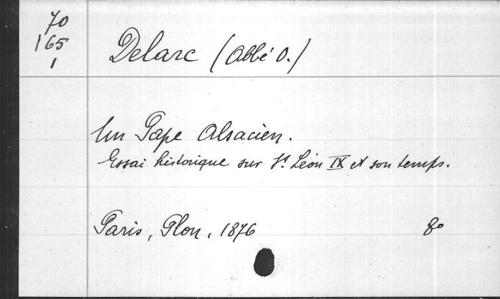 70
165
1
Delarc (Abbé O.)
Un Pape Alsacien.
Essai historique sur St Léon IX et son temps.
Paris, Plon, 1876 8o